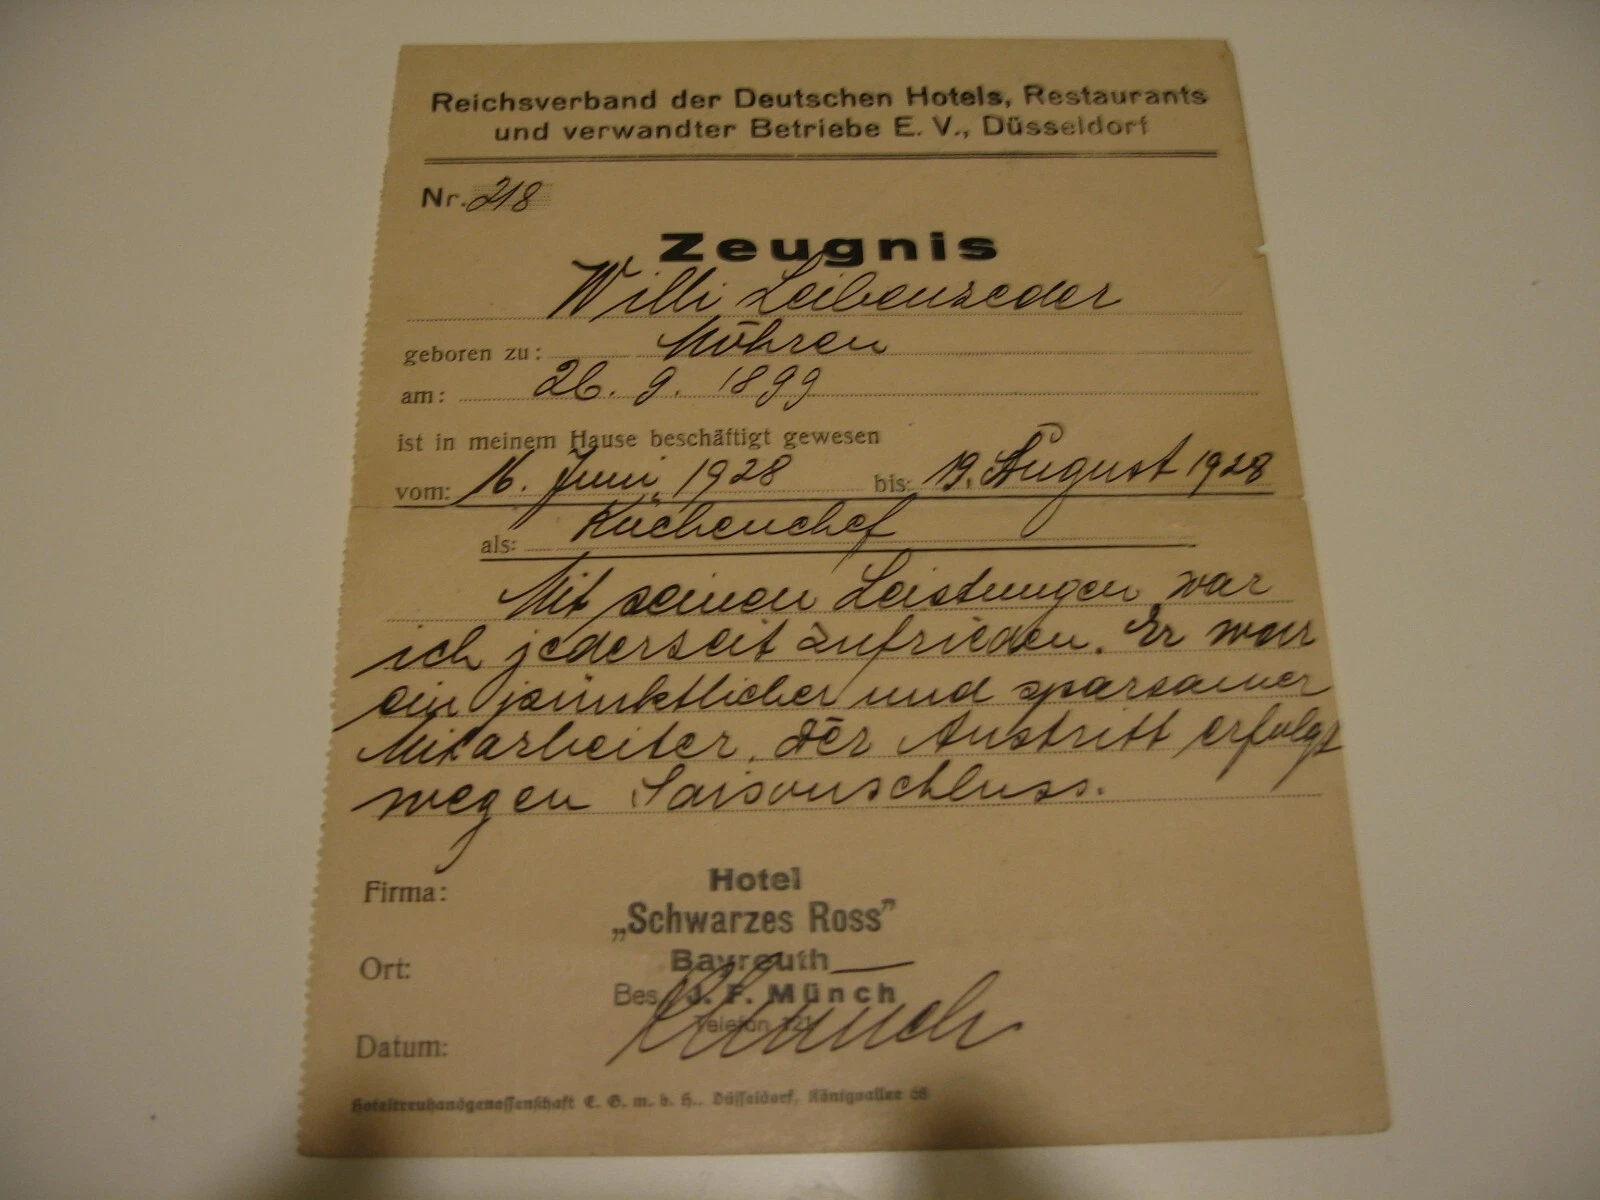 Reichsverband der Deutschen Hotels, Restaurants
und verwandter Betriebe E. V., Düsseldorf
Nr. 218
Zeugnis
Willi Leibenzeder
geboren zu: Möhren
am: 26. 9. 1899
ist in meinem Hause beschäftigt gewesen
vom: 16. Juni 1928 bis: 19. August 1928
als: Küchenchef
Mit seinen Leistungen war
ich jederzeit zufrieden. Er war
ein pünktlicher und sparsamer
Mitarbeiter. Der Austritt erfolgt
wegen Saisonschluss.
Firma: Hotel
„Schwarzes Ross"
Ort: Bayreuth
Bes. J. F. Münch
Telefon 121
Münch
Datum:
Hoteltreuhandgenossenschaft E. G. m. b. H., Düsseldorf, Königsallee 66